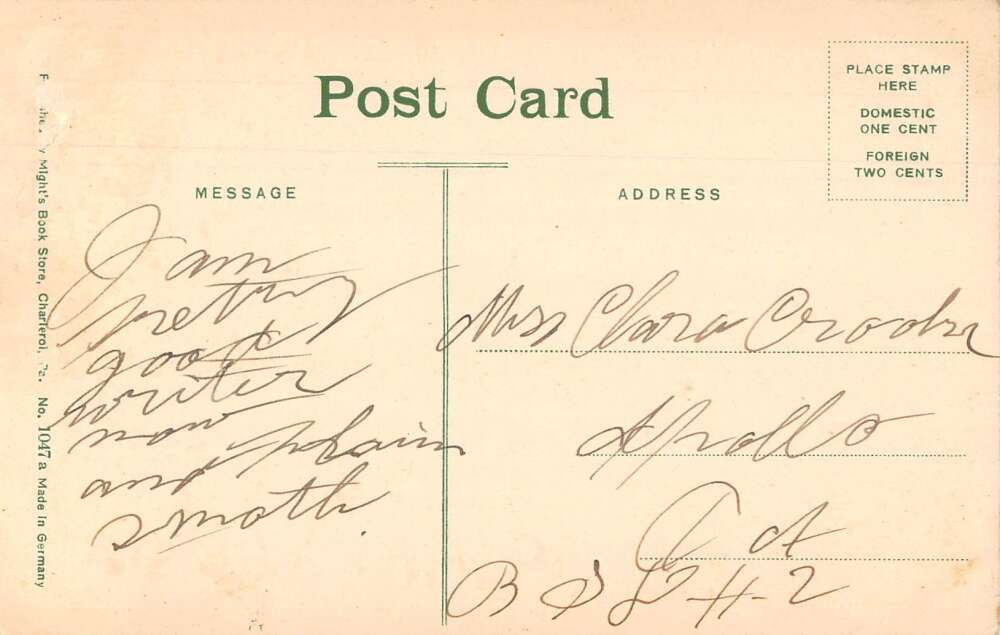 Post Card
PLACE STAMP
HERE
DOMESTIC
ONE CENT
FOREIGN
TWO CENTS
MESSAGE
ADDRESS
I am
pretty
good
writer
now
and plain
smoth.
Miss Clara Crooks
Apollo
Pa
#2
Might's Book Store, Charleroi, Pa. No. 1047 a Made in Germany